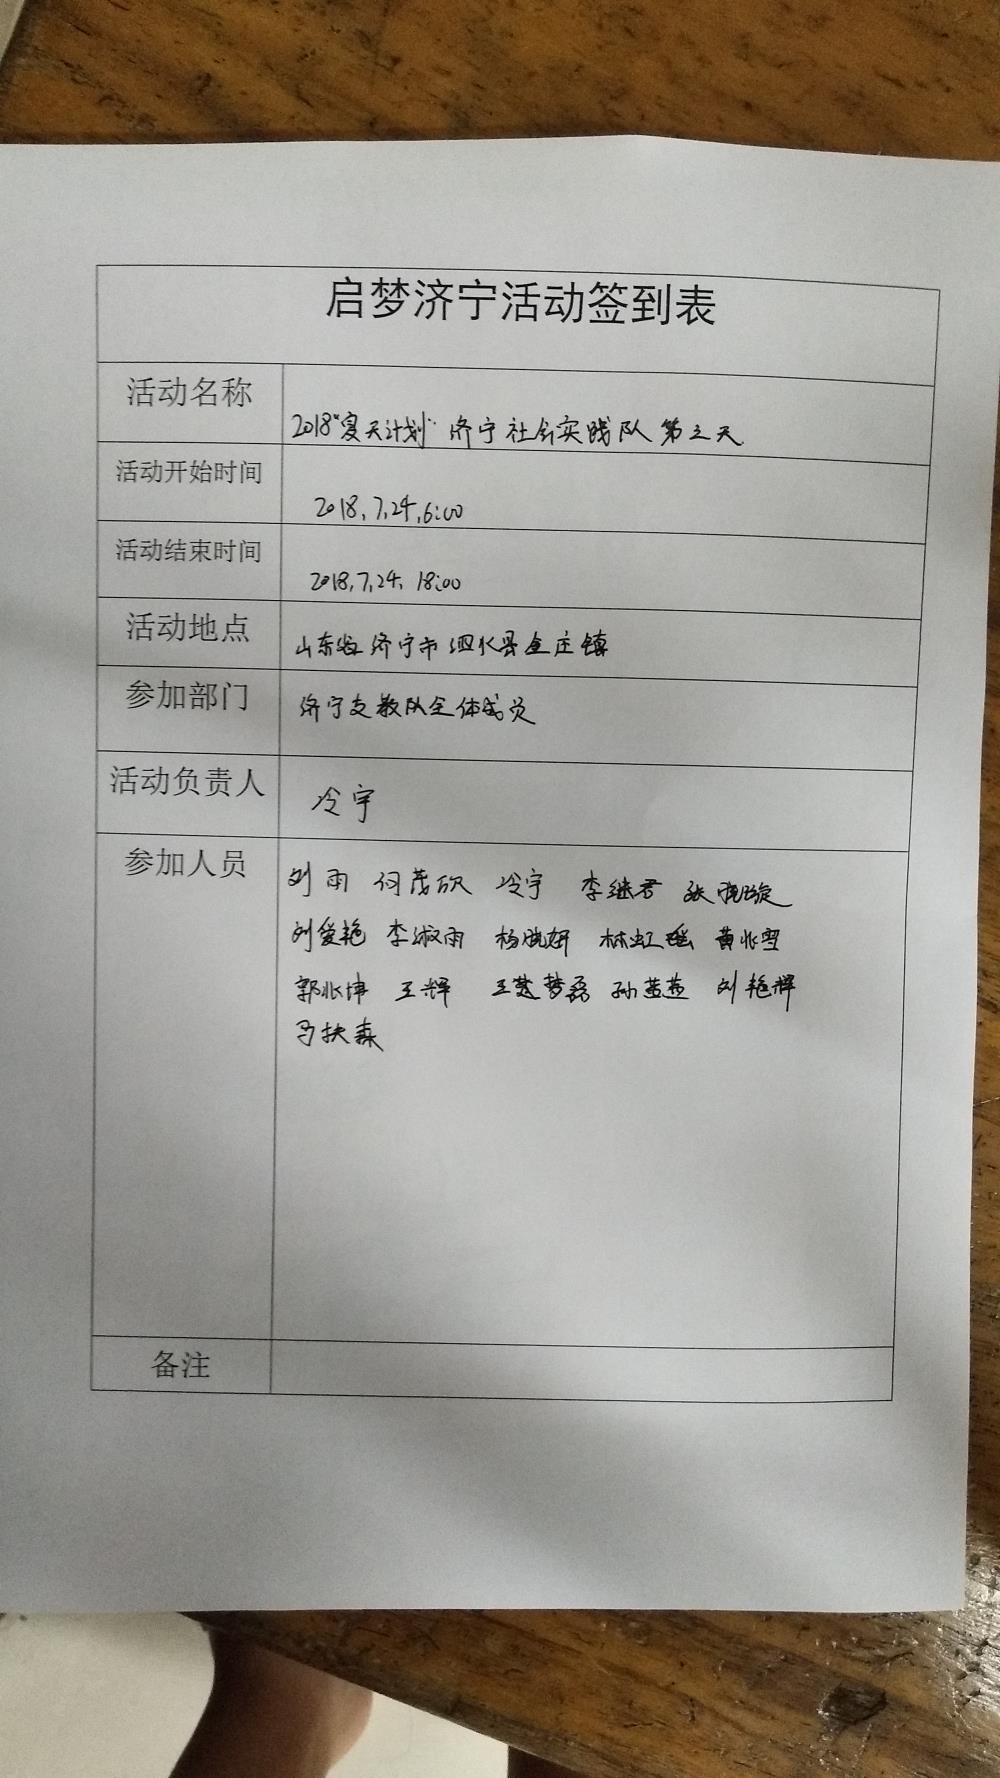 启梦济宁活动签到表
活动名称
2018"夏天计划" 济宁社会实践队 第三天
活动开始时间
2018.7.24.6:00
活动结束时间
2018.7.24. 18:00
活动地点
山东省济宁市泗水县金庄镇
参加部门
济宁支教队全体成员
活动负责人
冷宇
参加人员
刘雨 何茂欣 冷宇 李继君 张晓璇
刘爱艳 李淑雨 杨晓妍 林虹瑶 黄兆
郭兆坤 王辉 王楚梦磊 孙燕燕 刘艳辉
马扶森
备注